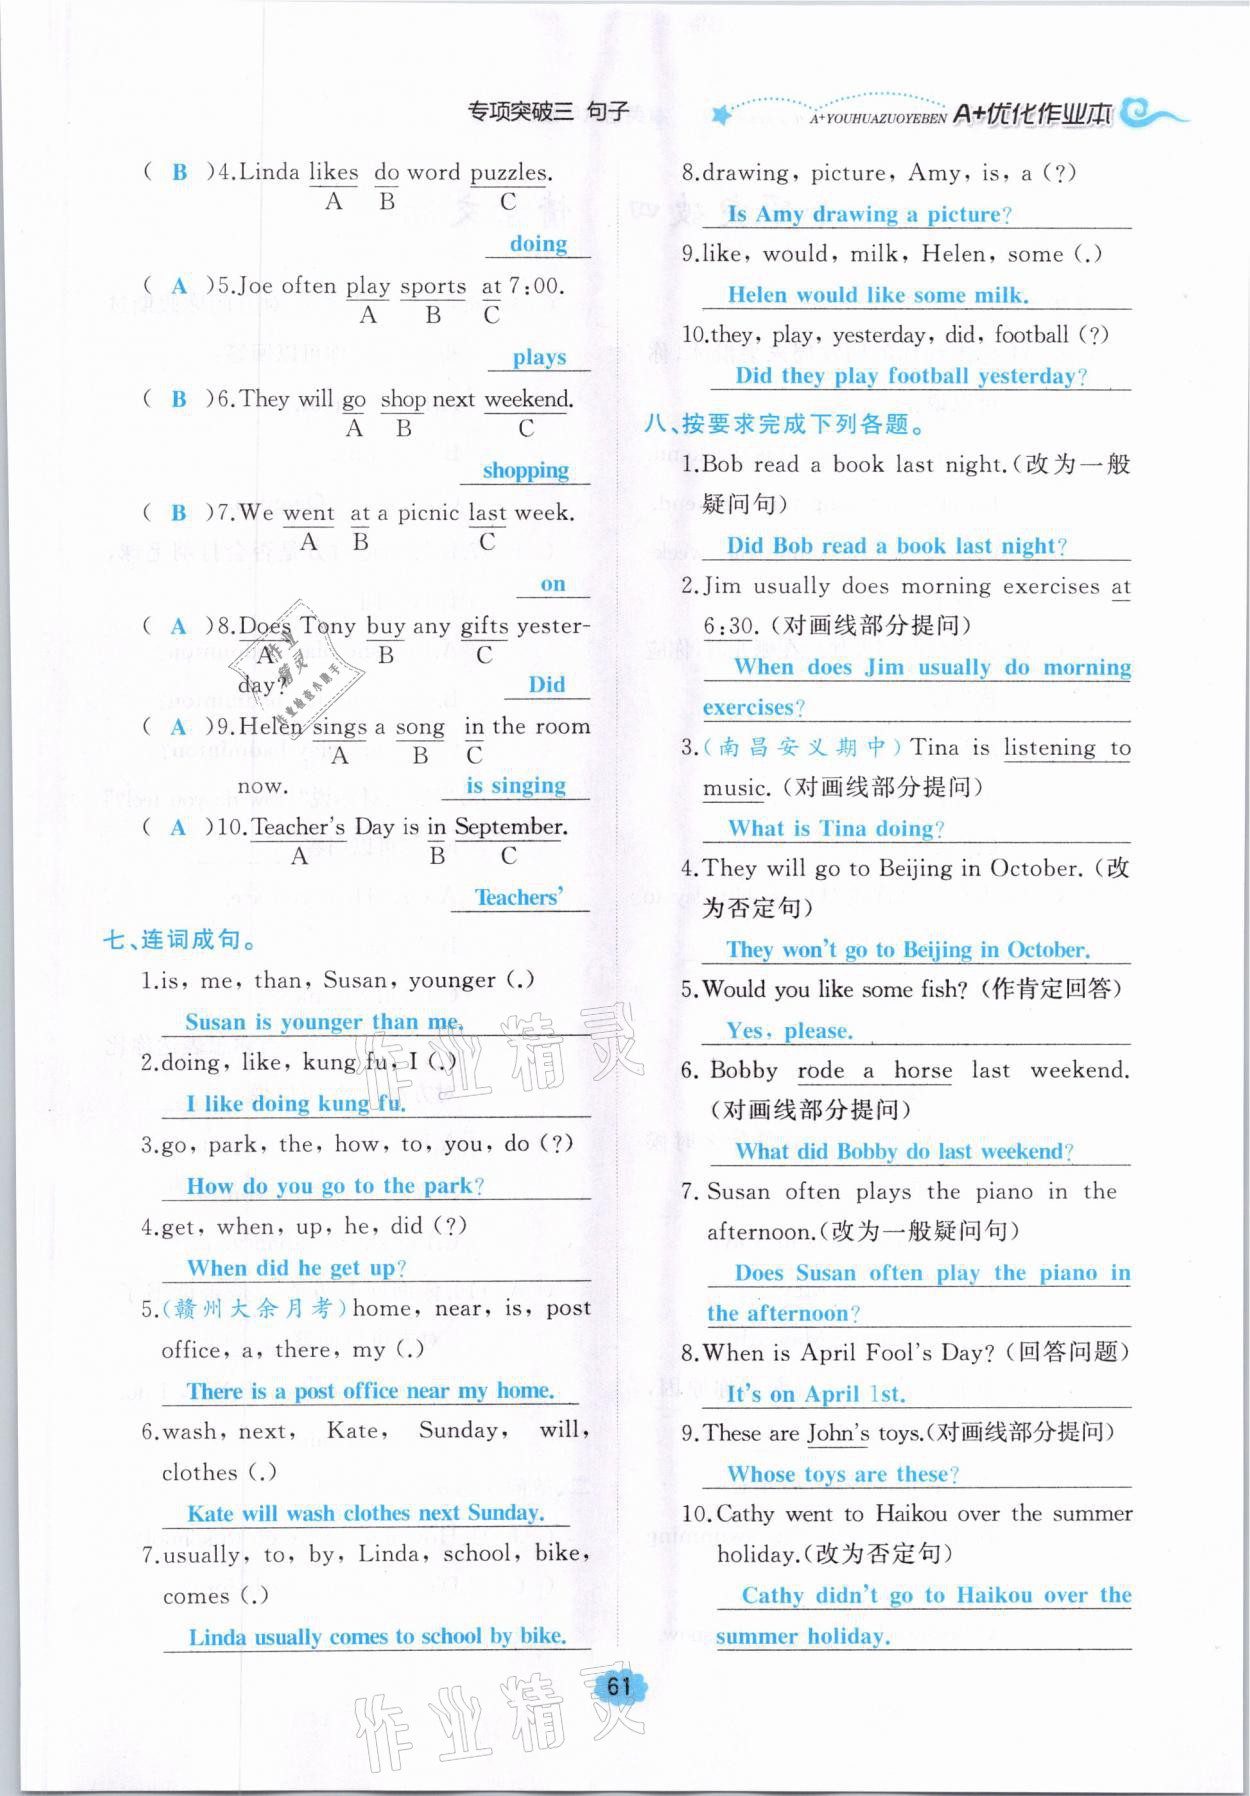 专项突破三 句子
A+YOUHUAZUOYEBEN A+优化作业本
( B )4.Linda likes do word puzzles.
A B C
doing
( A )5.Joe often play sports at 7:00.
A B C
plays
( B )6.They will go shop next weekend.
A B C
shopping
( B )7.We went at a picnic last week.
A B C
on
( A )8.Does Tony buy any gifts yester-
A B C
day? Did
( A )9.Helen sings a song in the room
A B C
now. is singing
( A )10.Teacher's Day is in September.
A B C
Teachers'
七、连词成句。
1.is, me, than, Susan, younger (.)
Susan is younger than me.
2.doing, like, kung fu, I (.)
I like doing kung fu.
3.go, park, the, how, to, you, do (?)
How do you go to the park?
4.get, when, up, he, did (?)
When did he get up?
5.(赣州大余月考)home, near, is, post
office, a, there, my (.)
There is a post office near my home.
6.wash, next, Kate, Sunday, will,
clothes (.)
Kate will wash clothes next Sunday.
7.usually, to, by, Linda, school, bike,
comes (.)
Linda usually comes to school by bike.
8.drawing, picture, Amy, is, a (?)
Is Amy drawing a picture?
9.like, would, milk, Helen, some (.)
Helen would like some milk.
10.they, play, yesterday, did, football (?)
Did they play football yesterday?
八、按要求完成下列各题。
1.Bob read a book last night.(改为一般
疑问句)
Did Bob read a book last night?
2.Jim usually does morning exercises at
6:30. (对画线部分提问)
When does Jim usually do morning
exercises?
3.(南昌安义期中)Tina is listening to
music. (对画线部分提问)
What is Tina doing?
4.They will go to Beijing in October. (改
为否定句)
They won't go to Beijing in October.
5.Would you like some fish? (作肯定回答)
Yes, please.
6. Bobby rode a horse last weekend.
(对画线部分提问)
What did Bobby do last weekend?
7. Susan often plays the piano in the
afternoon.(改为一般疑问句)
Does Susan often play the piano in
the afternoon?
8.When is April Fool's Day? (回答问题)
It's on April 1st.
9.These are John's toys.(对画线部分提问)
Whose toys are these?
10.Cathy went to Haikou over the summer
holiday.(改为否定句)
Cathy didn't go to Haikou over the
summer holiday.
作业精灵
作业精灵
作业检查小助手
作业精灵
61